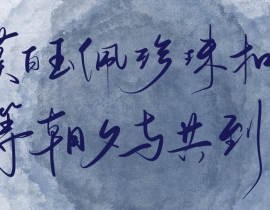 玉佩珍珠扣
等朝夕与共到